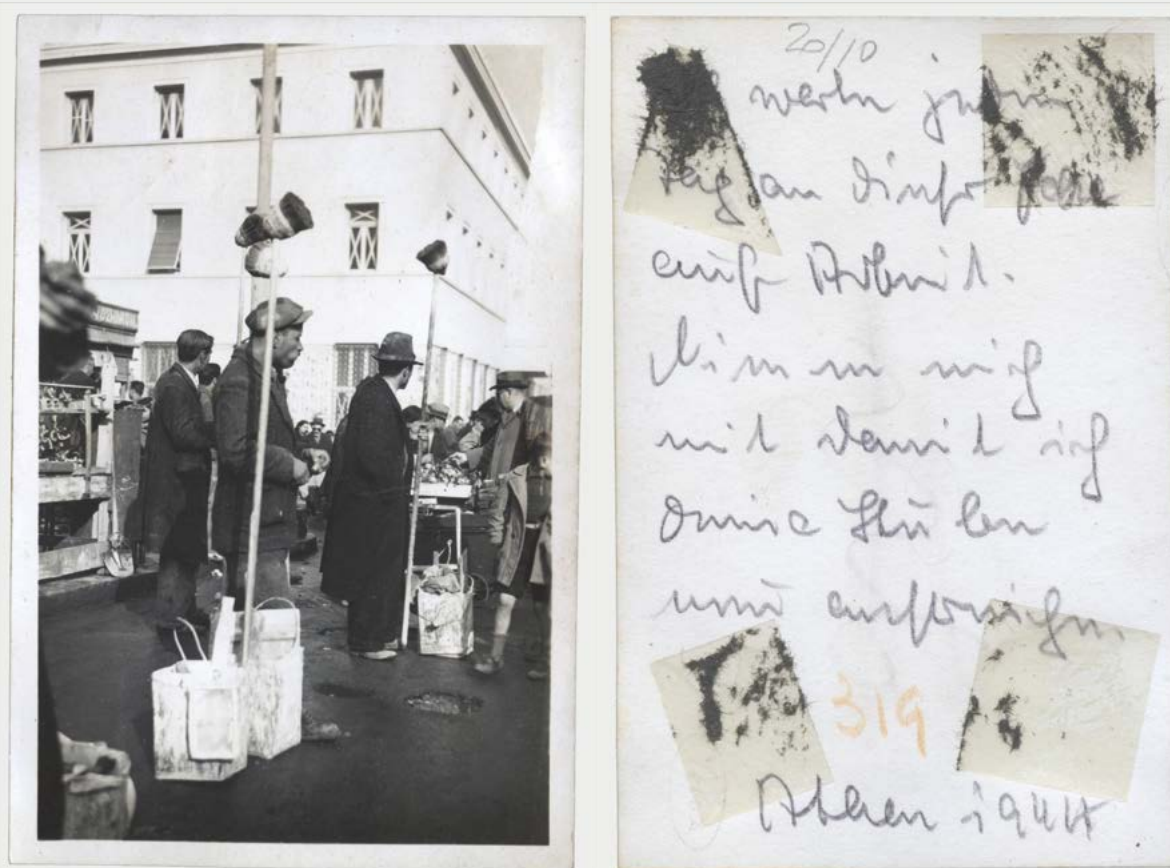 20/10
warte jeden
Tag an dieser Ecke
auf Arbeit.
Nimm mich
mit damit ich
deine Stuben
neu anstreiche.
319
Athen 1944